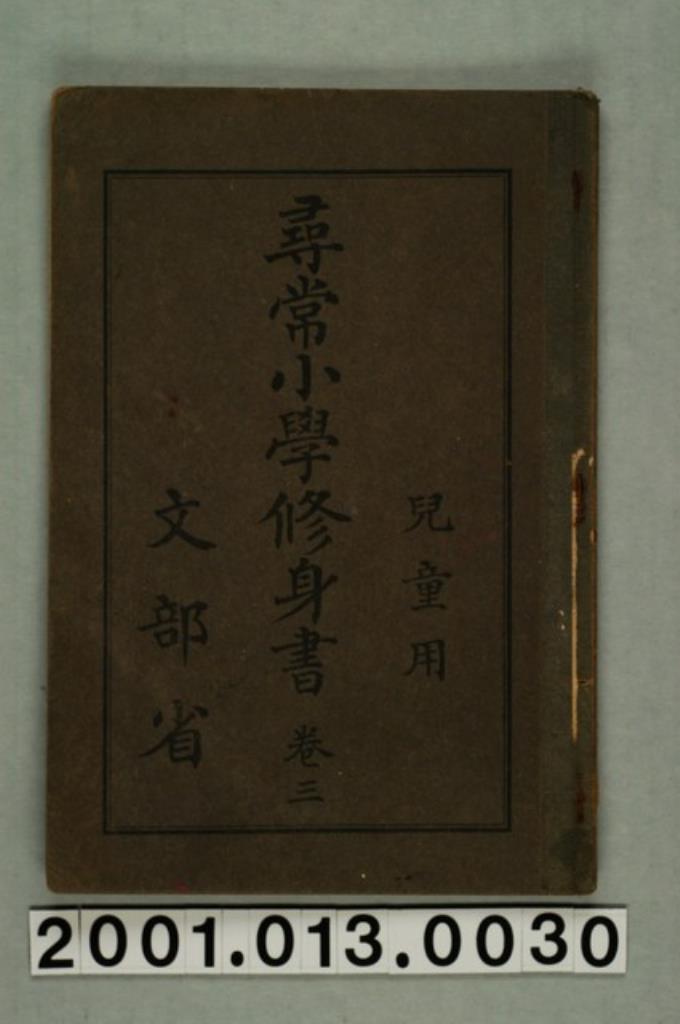 兒童用
尋常小學修身書 卷三
文部省
2001.013.0030